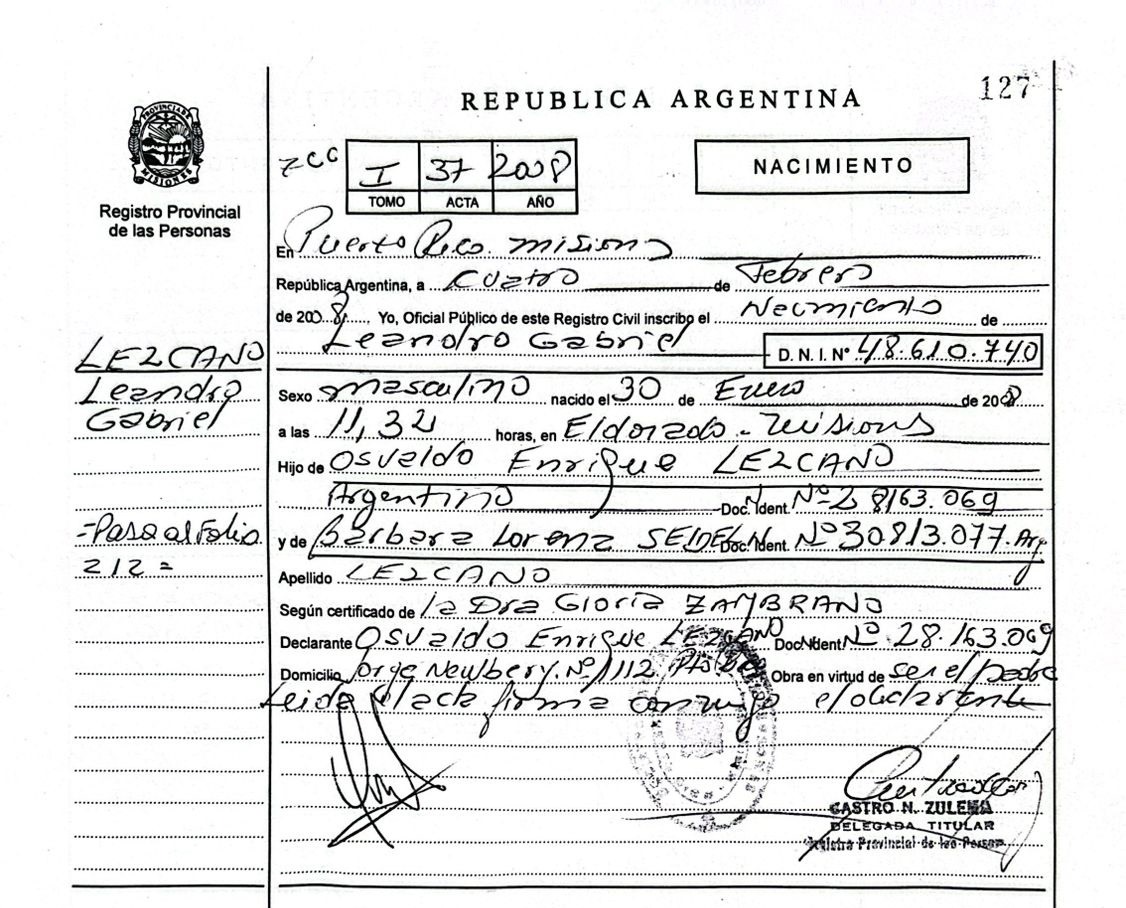 127
REPUBLICA ARGENTINA
PROVINCIA DE MISIONES
Registro Provincial
de las Personas
I 37 2008
TOMO ACTA AÑO
NACIMIENTO
En Puerto Rico. Misiones
República Argentina, a cuatro de Febrero
de 2008. Yo, Oficial Público de este Registro Civil inscribo el Nacimiento de
Leandro Gabriel D. N. I. Nº 48.610.740
LEZCANO
Leandro
Gabriel
Sexo masculino nacido el 30 de Enero de 2008
a las 11,32 horas, en Eldorado - Misiones
Hijo de Osvaldo Enrique LEZCANO
Argentino Doc. Ident. Nº 28163.069
-Pasa al Folio
212=
y de Bárbara Lorena Doc. Ident. Nº 30813.077. Arg
Apellido LEZCANO
Según certificado de la Dra Gloria ZAMBRANO
Declarante Osvaldo Enrique LEZCANO Doc. Ident Nº 28.163.069
Domicilio Jorge Newbery. Nº 1112. Obra en virtud de ser el padre
Leida el acta firma conmigo el declarante
CASTRO N. ZULEMA
DELEGADA TITULAR
Registro Provincial de las Personas